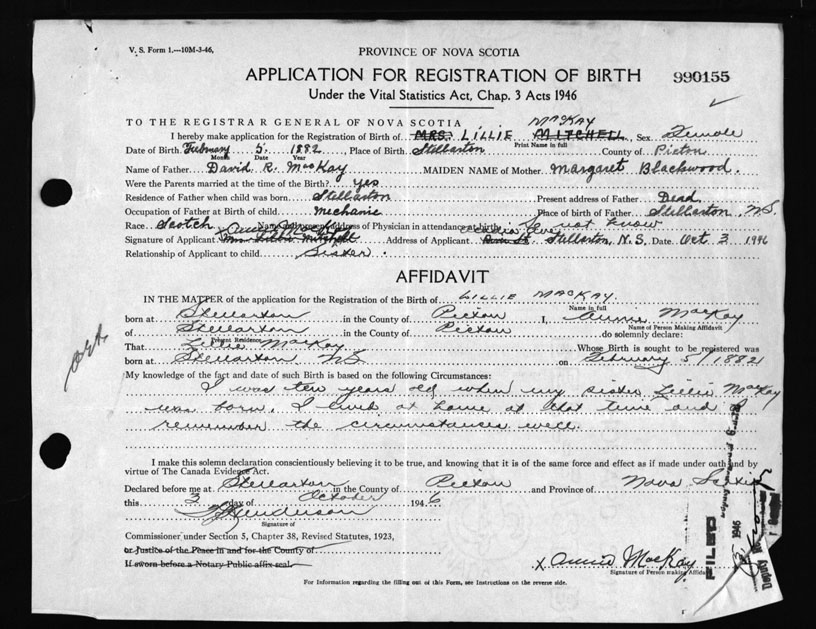 V. S. Form 1.—10M-3-46,
PROVINCE OF NOVA SCOTIA
APPLICATION FOR REGISTRATION OF BIRTH
990155
Under the Vital Statistics Act, Chap. 3 Acts 1946
TO THE REGISTRAR GENERAL OF NOVA SCOTIA
MACKAY
I hereby make application for the Registration of Birth of MRS. LILLIE MITCHELL, Sex Female
Print Name in full
Date of Birth February 5 1882, Place of Birth Stellarton County of Pictou
Month Date Year
Name of Father David R. MacKay MAIDEN NAME of Mother Margaret Blackwood.
Were the Parents married at the time of the Birth? yes
Residence of Father when child was born Stellarton Present address of Father Dead
Occupation of Father at Birth of child Mechanic Place of birth of Father Stellarton, N.S.
Race Scotch Name and present address of Physician in attendance at birth not know
Signature of Applicant Mrs. Lillie Mitchell Address of Applicant Stellarton, N.S. Date Oct 3 1946
Relationship of Applicant to child Sister.
AFFIDAVIT
IN THE MATTER of the application for the Registration of the Birth of LILLIE MACKAY.
Name in full
born at Stellarton in the County of Pictou I, Annie MacKay
Name of Person Making Affidavit
of Stellarton in the County of Pictou do solemnly declare:
Present Residence
That Lillie MacKay Whose Birth is sought to be registered was
born at Stellarton N.S. on February 5/1882
My knowledge of the fact and date of such Birth is based on the following Circumstances:
I was ten years old when my sister Lillie MacKay
was born. I lived at home at that time and I
remember the circumstances well.
I make this solemn declaration conscientiously believing it to be true, and knowing that it is of the same force and effect as if made under oath and by
virtue of The Canada Evidence Act.
Declared before me at Stellarton in the County of Pictou and Province of Nova Scotia
this 3 day of October 1946
Henderson
Signature of
Commissioner under Section 5, Chapter 38, Revised Statutes, 1923,
or Justice of the Peace in and for the County of
If sworn before a Notary Public affix seal.
x Annie MacKay
Signature of Person making Affidavit
For Information regarding the filling out of this Form, see Instructions on the reverse side.
FILED
1946
Deputy